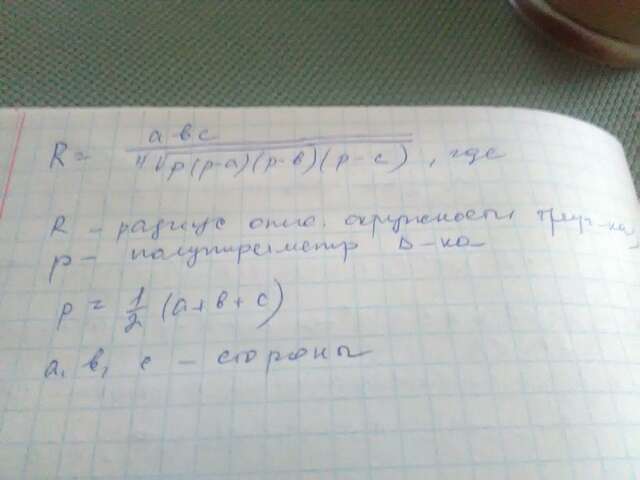 R = abc / 4√p(p-a)(p-b)(p-c), где
R - радиус опис. окружности треуг-ка,
p - полупериметр Δ-ка
p = 1/2 (a+b+c)
a, b, c - стороны